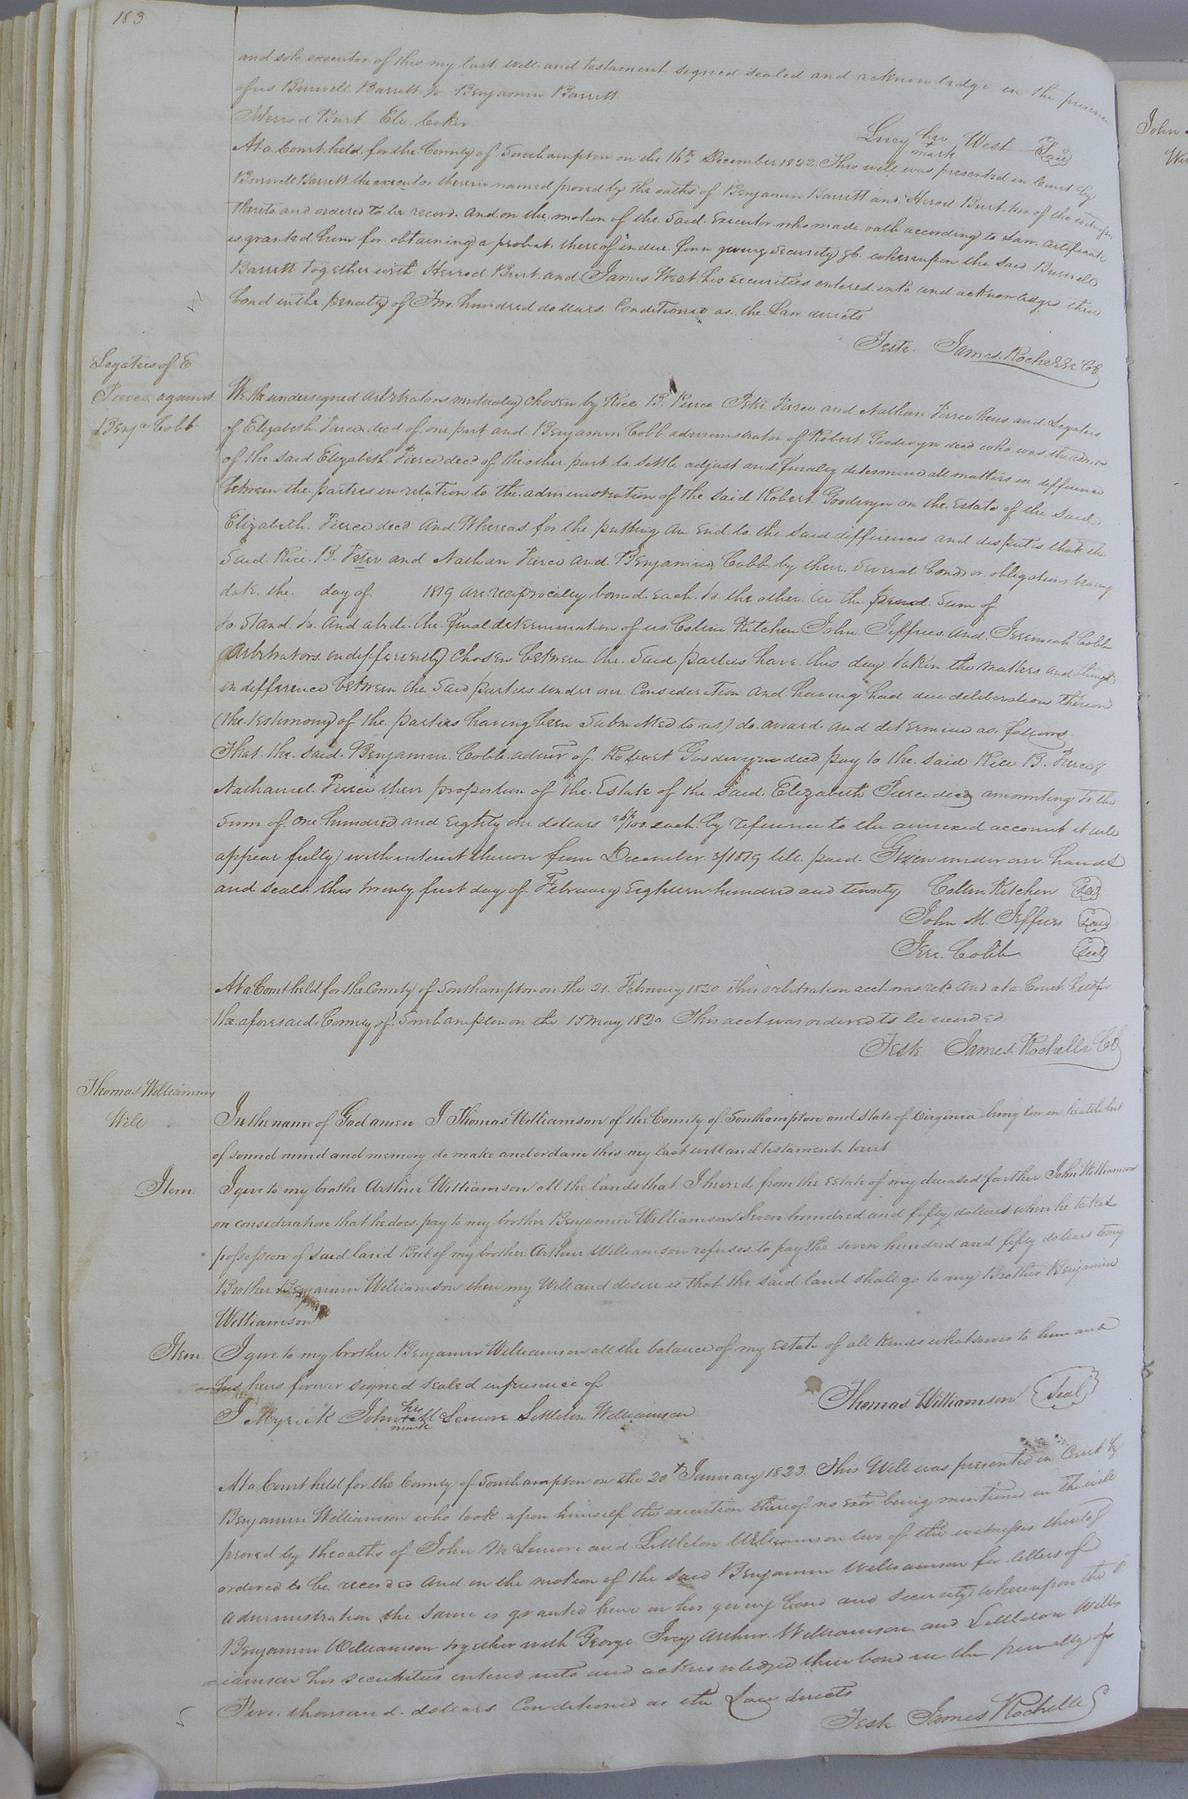 183
and sole executor of this my last will and testament signed sealed and acknowledge in the presence
of us Burwell Barrett Jr Benjamin Barrett
Herrod Burt Eli Coker
Lucy her + mark West Seal
At a Court held for the County of Southampton on the 16th December 1822 This will was presented in Court by
Burwell Barrett the executor therein named proved by the oaths of Benjamin Barrett and Herrod Burt two of the witnesses
thereto and ordered to be record. And on the motion of the Said Executor who made oath according to Law certificate
is granted him for obtaining a probat thereof in due form giving security &c whereupon the said Burwell
Barrett together with Herrod Burt and James West his securities entered into and acknowledged their
bond in the penalty of hundred dollars Conditioned as the Law directs
Teste James Rochelle CC
Legatees of E
Pierce against
Benja Cobb
We the undersigned arbitrators mutually chosen by Rice B. Pierce Peter Pierce and Nathan Pierce heirs and Legatees
of Elizabeth Pierce decd of one part and Benjamin Cobb administrator of Robert Goodwyn decd who was the admr
of the said Elizabeth Pierce decd of the other part to settle adjust and finaley determine all matters in difference
between the parties in relation to the administration of the said Robert Goodwyn on the Estate of the said
Elizabeth Pierce decd And Whereas for the putting an end to the said differences and disputes that the
Said Rice B. Peter and Nathan Pierce and Benjamin Cobb by their Several bonds or obligations bearing
date the day of 1819 are reciprocally bound each to the other in the penal Sum of
to Stand to and abide the final determination of us Colin Kitchen John Jeffries and Jeremiah Cobb
Arbitrators indifferently chosen between the Said parties have this day taken the matters and things
in difference between the Said parties under our Consideration and having had due deliberation thereon
(the testimony of the parties having been Submitted to us) do award and determine as follows
That the said Benjamin Cobb admr of Robert Goodwyn decd pay to the said Rice B. Pierce &
Nathaniel Pierce their proportion of the Estate of the Said Elizabeth Pierce decd amounting to the
Sum of one hundred and Eighty one dollars /100 each by reference to the annexed account it will
appear fully with interest thereon from December 3/1819 till paid. Given under our hands
and seals this twenty first day of February Eighteen hundred and twenty Collin Kitchen Seal
John M Jeffries Seal
Jere. Cobb Seal
At a Court held for the County of Southampton on the 21 February 1820 This arbitration acct was retd And at a Court held for
the aforesaid County of Southampton on the 15 May 1820 This acct was ordered to be recorded
Teste James Rochelle CC
Thomas Williamsons
Will
In the name of God amen I Thomas Williamson of the County of Southampton and State of Virginia being low in health but
of sound mind and memory do make and ordain this my last will and testament to wit
Item I give to my brother Arthur Williamson all the lands that I heired from the Estate of my deceased farther John Williamson
on consideration that he does pay to my brother Benjamin Williamson Seven hundred and fifty dollars when he takes
possession of said land But if my brother Arthur Williamson refuses to pay the seven hundred and fifty dollars to my
Brother Benjamin Williamson then my Will and desire is that the said land shall go to my Brother Benjamin
Williamson
Item I give to my brother Benjamin Williamson all the balance of my Estate of all kinds whatsoever to him and
his heirs forever signed sealed in presence of
Thomas Williamson Seal
J Myrick John his + mark M Lemore Littleton Williamson
At a Court held for the County of Southampton on the 20th January 1823 This Will was presented in Court by
Benjamin Williamson who took upon himself the execution thereof no Exor being mentioned in the will
proved by the oaths of John M Lemore and Littleton Williamson two of the witnesses thereto &
ordered to be recorded And on the motion of the said Benjamin Williamson for letters of
administration the same is granted him on his giving bond and security whereupon the s
Benjamin Williamson together with George Ivey Arthur Williamson and Littleton Will=
=iamson his securities entered into and acknowledged their bond in the penalty of
Five thousand dollars Conditioned as the Law directs
Teste James Rochelle C
John